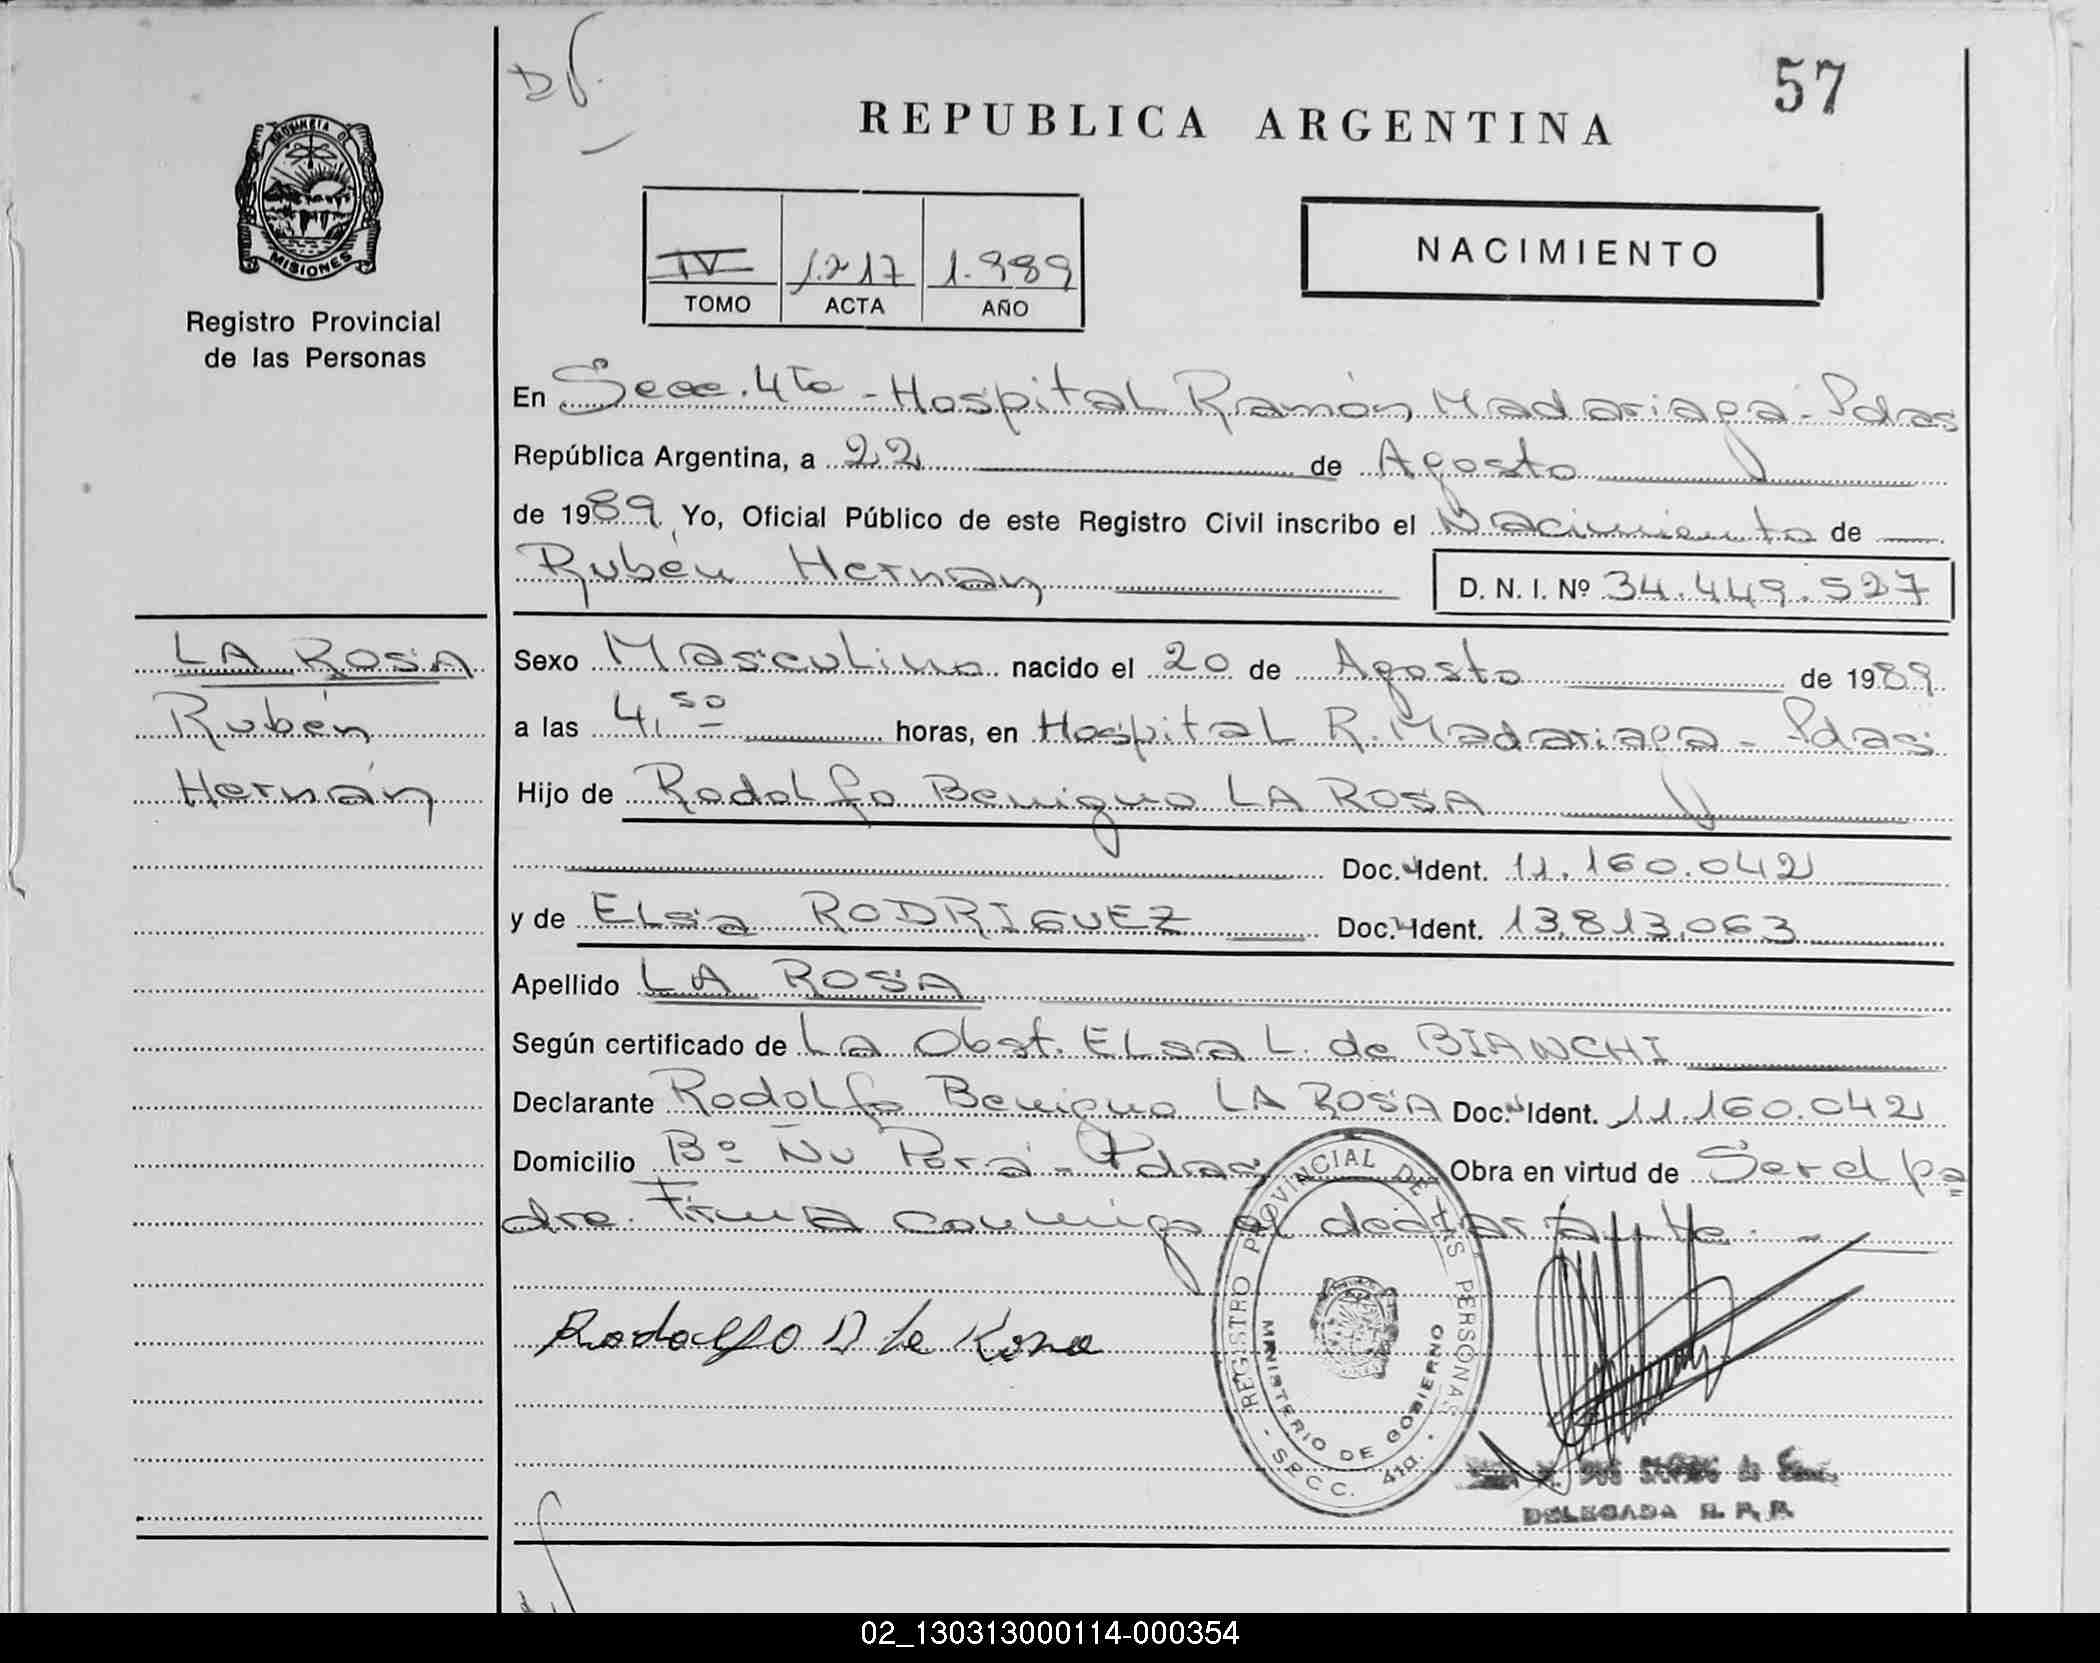 57
REPUBLICA ARGENTINA
PROVINCIA DE
MISIONES
Registro Provincial
de las Personas
IV 1.217 1.989
TOMO ACTA AÑO
NACIMIENTO
En Secc. 4ta - Hospital Ramón Madariaga - Pdas
República Argentina, a 22 de Agosto
de 1989 Yo, Oficial Público de este Registro Civil inscribo el Nacimiento de
Rubén Hernán
D. N. I. Nº 34.449.527
LA ROSA
Rubén
Hernán
Sexo Masculino nacido el 20 de Agosto de 1989
a las 4,50 horas, en Hospital R. Madariaga - Pdas
Hijo de Rodolfo Benigno LA ROSA
Doc. Ident. 11.160.042
y de Elsa RODRIGUEZ Doc. Ident. 13.813.063
Apellido LA ROSA
Según certificado de La Obst. Elsa L. de BIANCHI
Declarante Rodolfo Benigno LA ROSA Doc. Ident. 11.160.042
Domicilio Bº Ñu Porá - Pdas Obra en virtud de Ser el pa
dre. Firma conmigo el declarante. -
Rodolfo B la Rosa
REGISTRO PROVINCIAL DE LAS PERSONAS
MINISTERIO DE GOBIERNO
- SECC. 4ta. -
DELEGADA R. P. P.
02_130313000114-000354